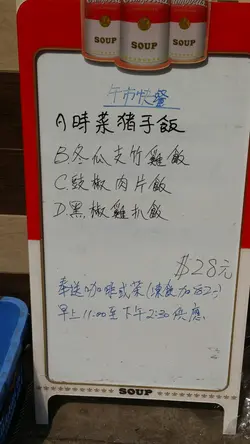 Campbell's
SOUP SOUP SOUP
午市快餐
A時菜猪手飯
B.冬瓜支竹雞飯
C.豉椒肉片飯
D.黑椒雞扒飯
$28元
奉送咖啡或茶(凍飲加后2元)
早上11:00至下午2:30供應.
SOUP